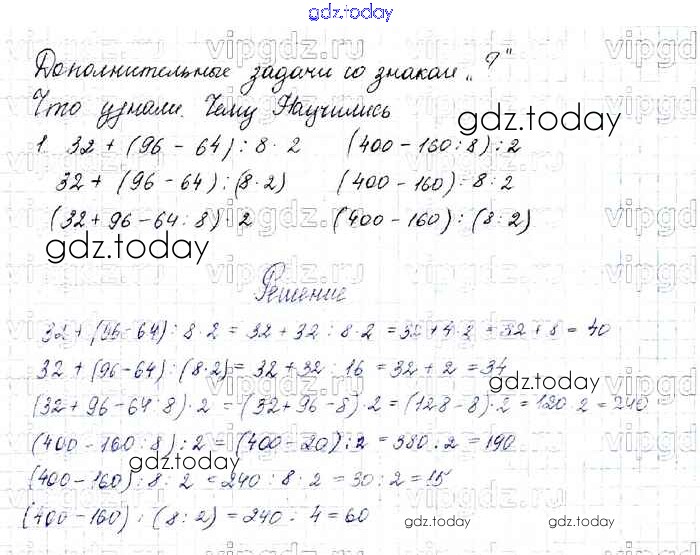 gdz.today
Дополнительные задачи со знаком „?"
Что узнали. Чему Научились
1. 32 + (96 - 64) : 8 · 2 (400 - 160 : 8) : 2
32 + (96 - 64) : (8 · 2) (400 - 160) : 8 : 2
(32 + 96 - 64 : 8) · 2 (400 - 160) : (8 : 2)
Решение
32 + (96 - 64) : 8 · 2 = 32 + 32 : 8 · 2 = 32 + 4 · 2 = 32 + 8 = 40
32 + (96 - 64) : (8 · 2) = 32 + 32 : 16 = 32 + 2 = 34
(32 + 96 - 64 : 8) · 2 = (32 + 96 - 8) · 2 = (128 - 8) · 2 = 120 · 2 = 240
(400 - 160 : 8) : 2 = (400 - 20) : 2 = 380 : 2 = 190
(400 - 160) : 8 : 2 = 240 : 8 : 2 = 30 : 2 = 15
(400 - 160) : (8 : 2) = 240 : 4 = 60
gdz.today
gdz.today
gdz.today
gdz.today
gdz.today
gdz.today
vipgdz.ru